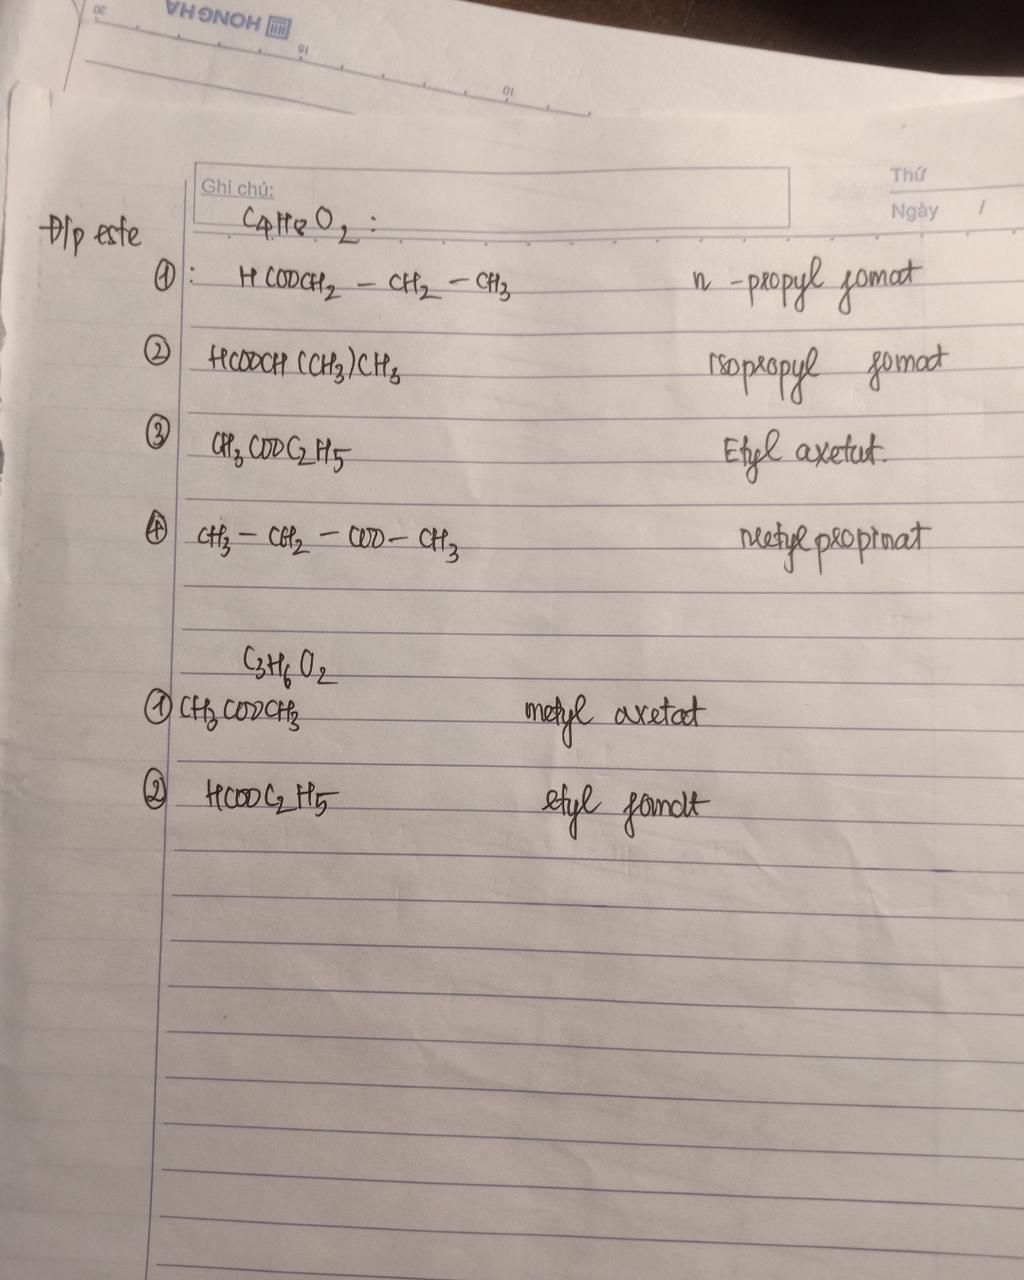 HONG HA
20 15 10
Ghi chú:
Thứ
Ngày /
Đ/p este
C4H8O2:
①: HCOOCH2 – CH2 – CH3 n -propyl fomat
② HCOOCH(CH3)CH3 Isopropyl fomat
③ CH3COOC2H5 Etyl axetat.
④ CH3 – CH2 – COO – CH3 Metyl propinat
C3H6O2
① CH3COOCH3 metyl axetat
② HCOOC2H5 etyl fomat